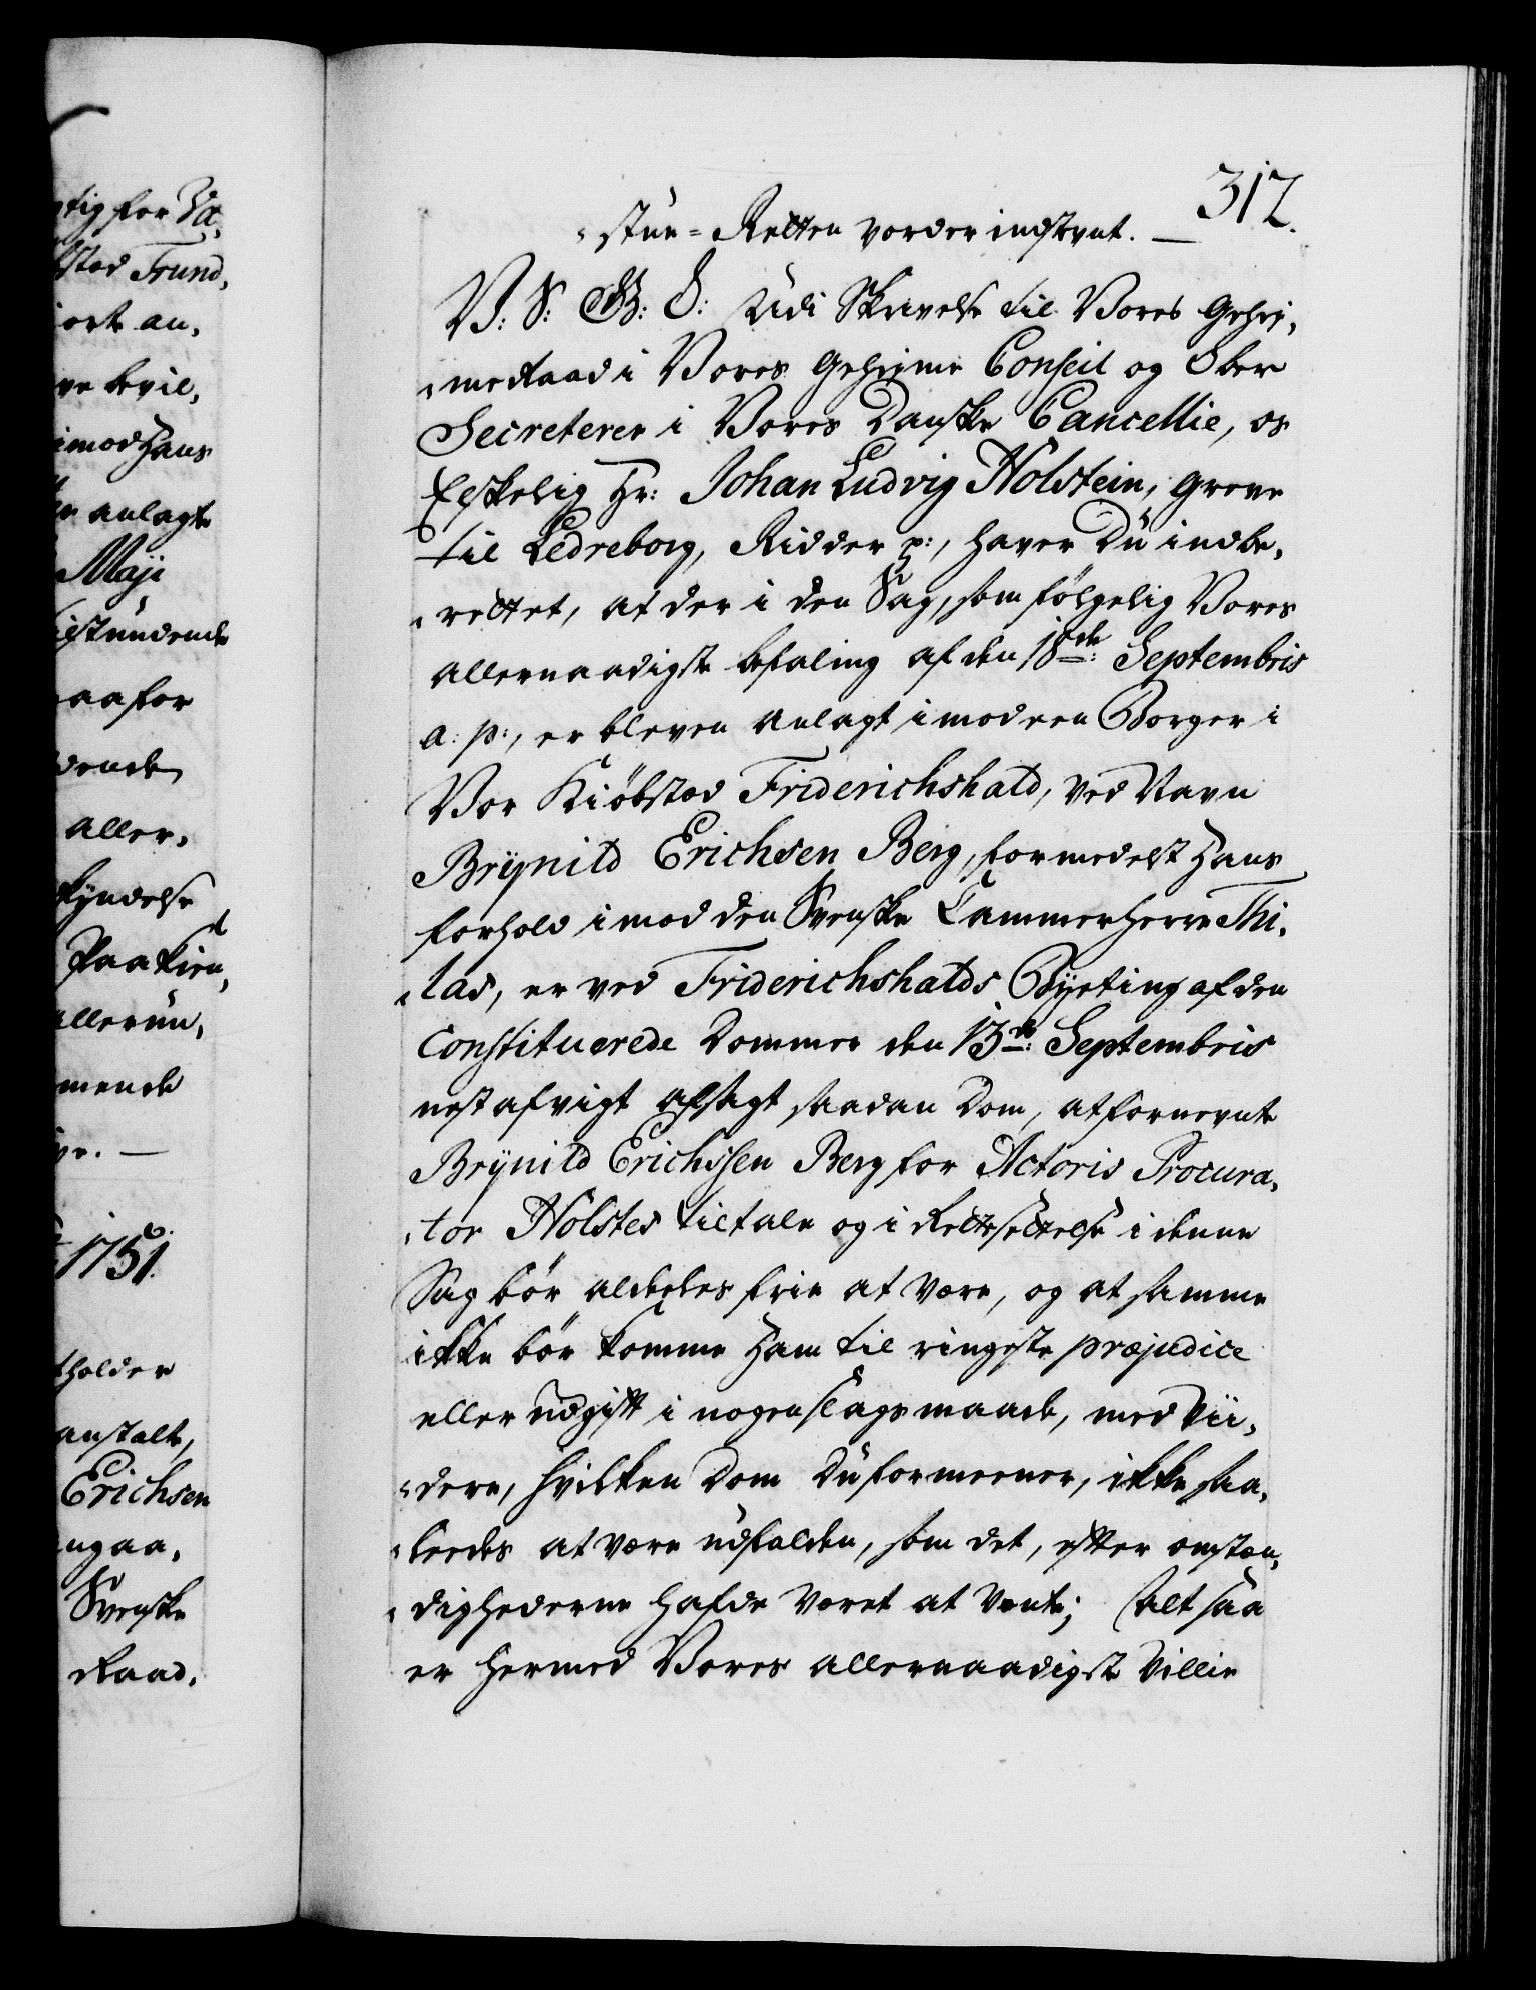 312.
stue-Retten vorder indstevnt. —
V: S: G: V: Udi Skrivelse til Vores Gehej,
meRaad i Vores Geheime Conseil og Ober
Secreterer i Vores Danske Cancellie, os
Elskelig Hr: Johan Ludvig Holstein, Greve
til Ledreborg, Ridder p:, haver Du indbe,
rettet, at der i den Sag, som følgelig Vores
allernaadigste befaling af den 18de: Septembris
a: p:, er bleven anlagt imod een Borger i
Vor Kiöbstad Friderichshald, ved Navn
Brÿnild Erichsen Berg, formedelst Hans
forhold imod den Svenske CammerHerre Thi,
las, er ved Friderichshalds Bÿeting af den
Constituerede Dommer den 13de: Septembris
nest afvigt afsagt saadan Dom, at fornevnte
Brÿnild Erichssen Berg for Actoris Procura,
tor Holstes tiltale og i Rettesettelse i denne
Sag bör aldeeles frie at være, og at samme
ikke bör komme Ham til ringeste præjudice
eller udgift i nogenslags maade, med vii,
dere, hvilken Dom Du formeener, ikke saa,
leedes at være udfalden, som det, efter omstæn,
dighederne hafde været at vente; Alt saa
er hermed Vores allernaadigste Villie
tig for Va,
sted Trund,
iorte an,
ve bevil,
imod Hans
anlagte
Maji
istundende
aafor
dende
aller,
kÿndelse
Paakien,
allerun,
mende
ve. —
1751.
tholder
anstalt,
Erichsen
ngaa,
Svenske
Raad,